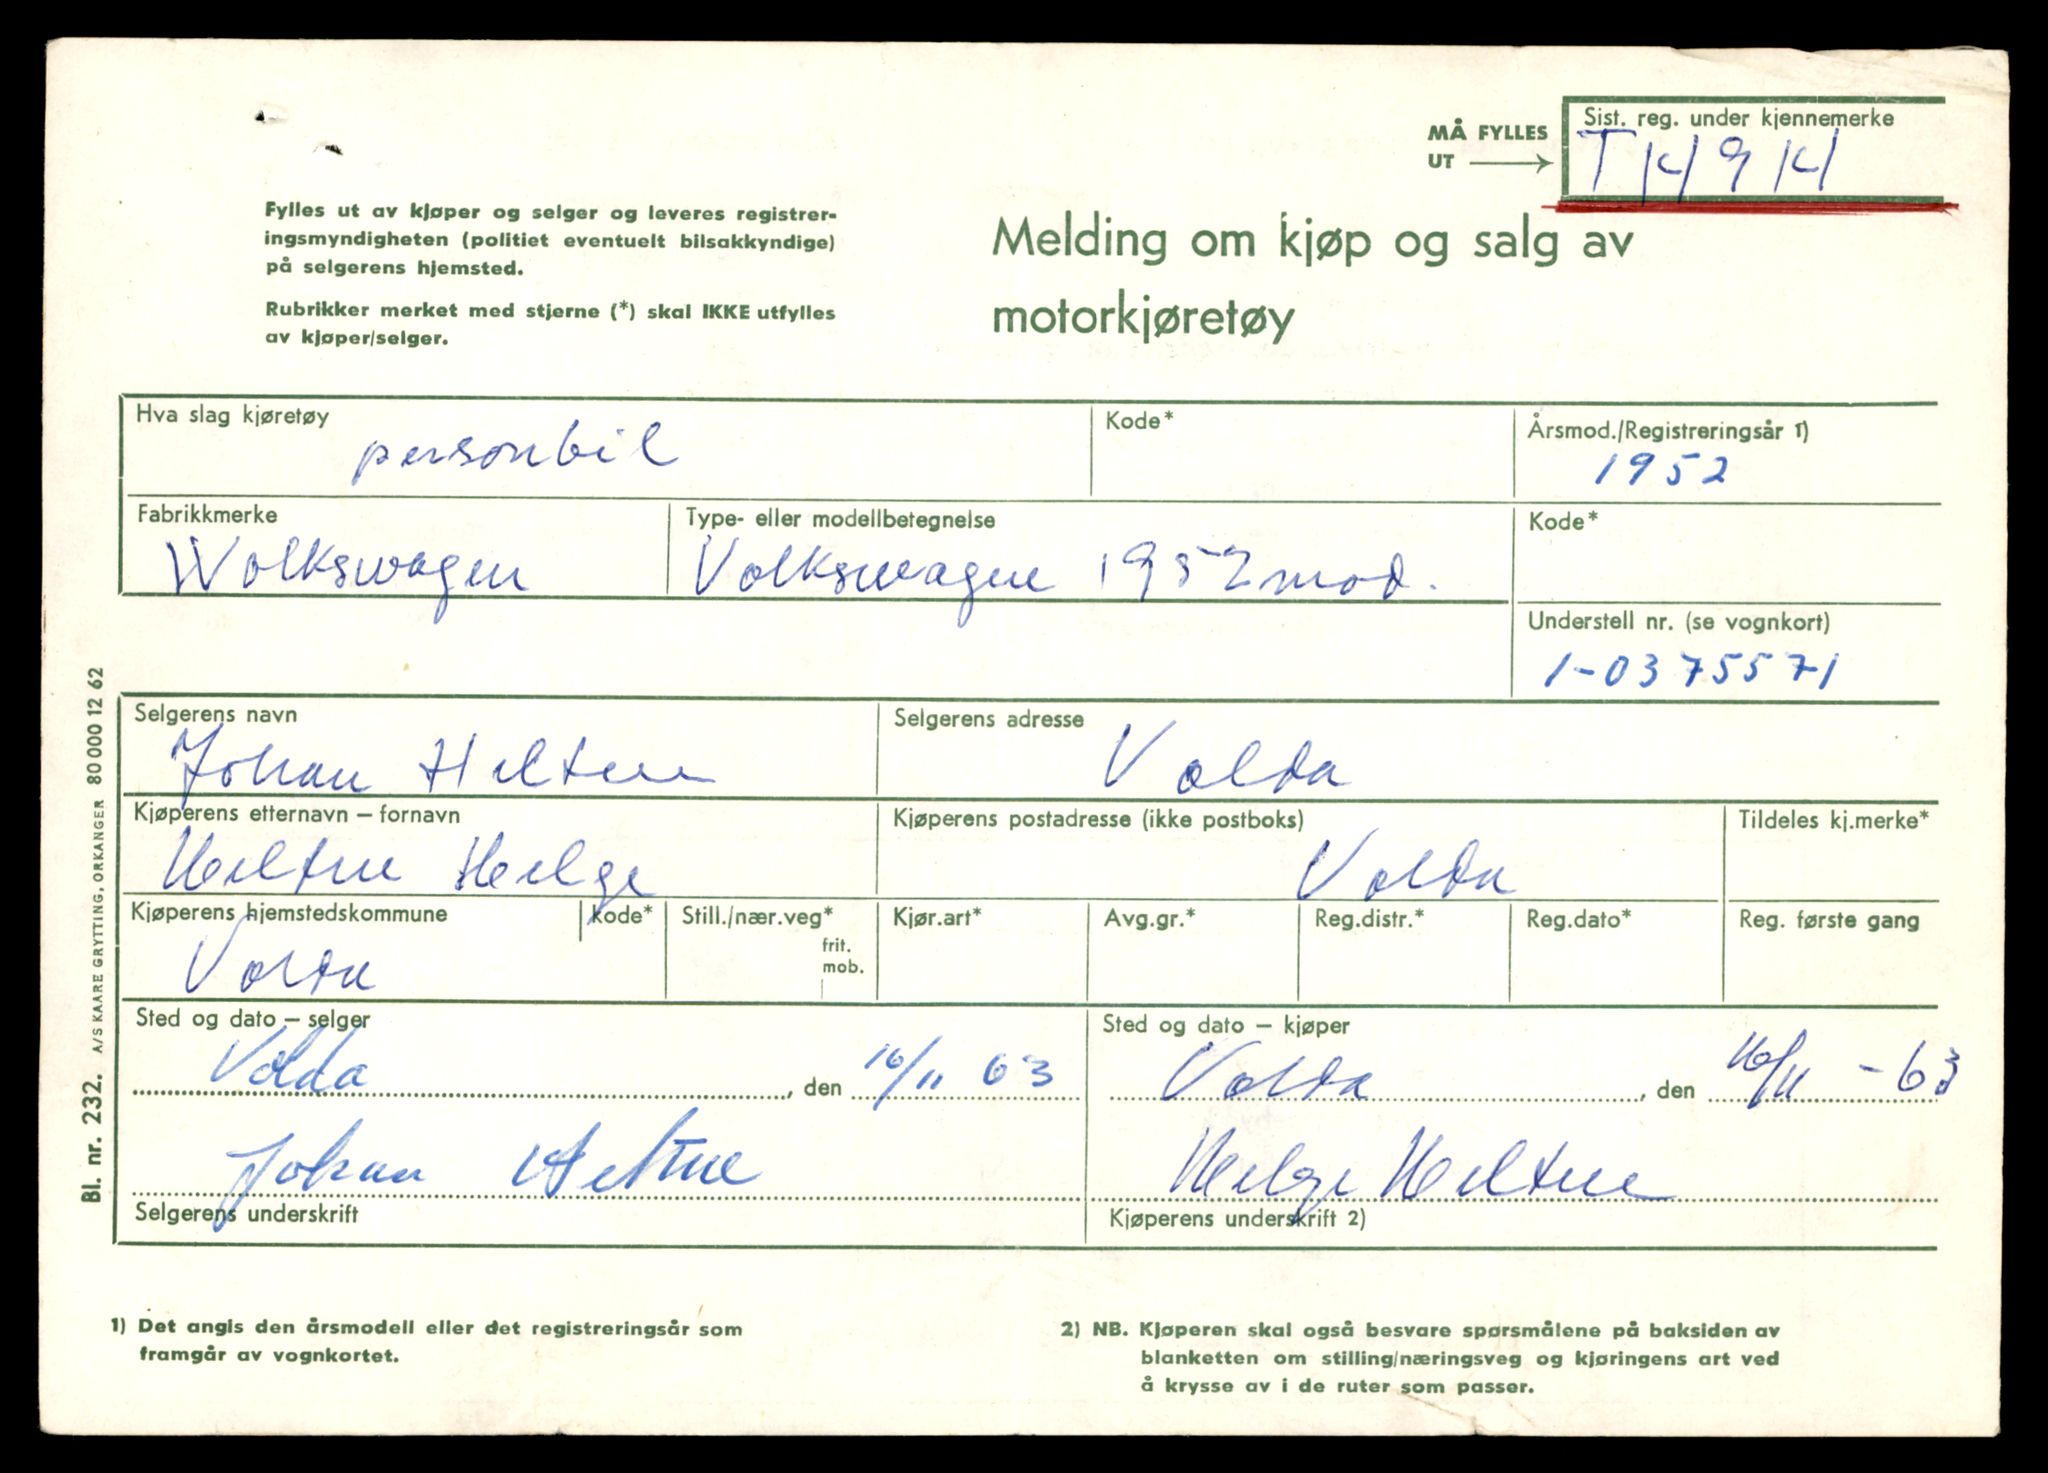 MÅ FYLLES
UT
Sist. reg. under kjennemerke
T 1494
Fylles ut av kjøper og selger og leveres registrer-
ingsmyndigheten (politiet eventuelt bilsakkyndige)
på selgerens hjemsted.
Rubrikker merket med stjerne (*) skal IKKE utfylles
av kjøper/selger.
Melding om kjøp og salg av
motorkjøretøy
Hva slag kjøretøy
personbil
Kode*
Årsmod./Registreringsår 1)
1952
Fabrikkmerke
Wolkswagen
Type- eller modellbetegnelse
Volkswagen 1952 mod.
Kode*
Understell nr. (se vognkort)
1-0375571
Selgerens navn
Johan Heltne
Selgerens adresse
Volda
Kjøperens etternavn – fornavn
Heltne Helge
Kjøperens postadresse (ikke postboks)
Volda
Tildeles kj.merke*
Kjøperens hjemstedskommune
Volda
kode*
Still./nær.veg*
frit.
mob.
Kjør.art*
Avg.gr.*
Reg.distr.*
Reg.dato*
Reg. første gang
Sted og dato – selger
Volda, den 16/11 63
Sted og dato – kjøper
Volda, den 16/11 - 63
Johan Heltne
Selgerens underskrift
Helge Heltne
Kjøperens underskrift 2)
1) Det angis den årsmodell eller det registreringsår som
framgår av vognkortet.
2) NB. Kjøperen skal også besvare spørsmålene på baksiden av
blanketten om stilling/næringsveg og kjøringens art ved
å krysse av i de ruter som passer.
Bl. nr. 232. A/S KAARE GRYTTING, ORKANGER 80 000 12 62